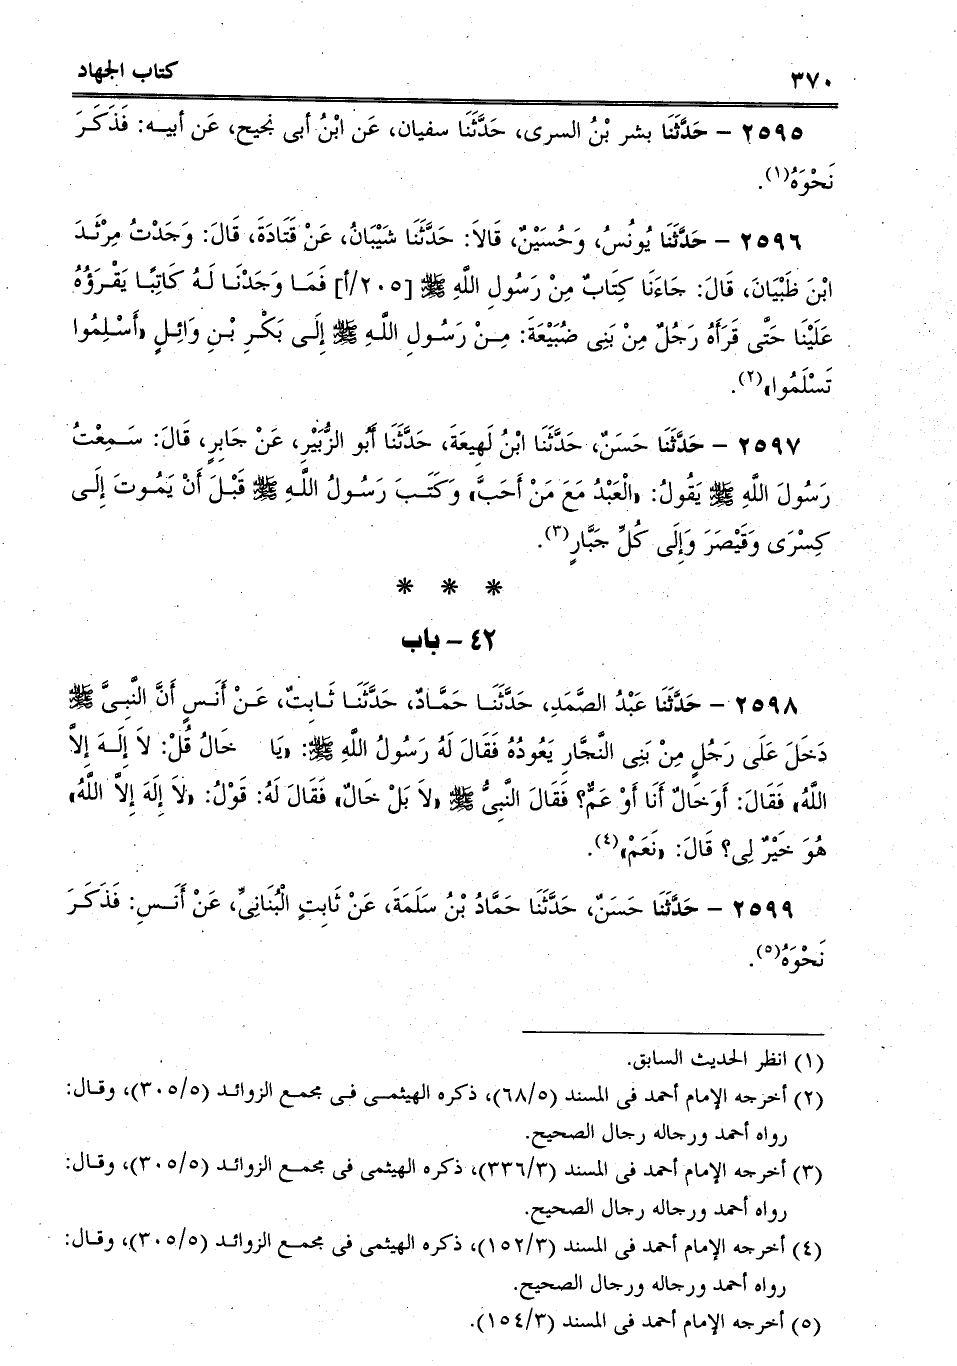 ٣٧٠
كتاب الجهاد
٢٥٩٥ – حَدَّثَنَا بشر بْنُ السرى، حَدَّثَنَا سفيان، عَن ابْنُ أبى نجيح، عَن أبيـه: فَذَكَـرَ
نَحْوَهُ(١).
٢٥٩٦ – حَدَّثَنَا يُونُسُ، وَحُسَيْنٌ، قَالاَ: حَدَّثَنَا شَيْبَانُ، عَنْ قَتَادَةَ، قَالَ: وَجَدْتُ مِرْثَـدَ
ابْنَ ظَبْيَانَ، قَالَ: جَاءَنَا كِتَابٌ مِنْ رَسُولِ اللَّهِ ﷺ [٢٠٥/أ] فَمَـا وَجَدْنَـا لَـهُ كَاتِبًـا يَقْـرَؤُهُ
عَلَيْنَا حَتَّى قَرَأَهُ رَجُلٌ مِنْ بَنِى ضُبَيْعَةَ: مِـنْ رَسُـولِ اللَّـهِ ﷺ إِلَـى بَكْـرِ بْـنِ وَائِـلٍ «أَسْـلِمُوا
تَسْلَمُوا»(٢).
٢٥٩٧ – حَدَّثَنَا حَسَنٌ، حَدَّثَنَا ابْنُ لَهِيعَةَ، حَدَّثَنَا أَبُو الزُّبَيْرِ، عَنْ جَابِرٍ، قَالَ: سَـمِعْتُ
رَسُولَ اللَّهِ ﷺ يَقُولُ: «الْعَبْدُ مَعَ مَنْ أَحَبَّ» وَكَتَـبَ رَسُـولُ اللَّـهِ ﷺ قَبْلَ أَنْ يَمُـوتَ إِلَـى
كِسْرَى وَقَيْصَرَ وَإِلَى كُلِّ جَبَّارٍ(٣).
* * *
٤٢ – باب
٢٥٩٨ – حَدَّثَنَا عَبْدُ الصَّمَدِ، حَدَّثَنَـا حَمَّـادٌ، حَدَّثَنَـا ثَـابِتٌ، عَـنْ أَنَـسٍ أَنَّ النَّبِـىَّ ﷺ
دَخَلَ عَلَى رَجُلٍ مِنْ بَنِى النَّجَّارِ يَعُودُهُ فَقَالَ لَهُ رَسُولُ اللَّهِ ﷺ: «يَا خَالُ قُلْ: لاَ إِلَـهَ إِلاَّ
اللَّهُ» فَقَالَ: أَوَخَالٌ أَنَا أَوْ عَمٌّ؟ فَقَالَ النَّبِىُّ ﷺ «لاَ بَلْ خَالٌ» فَقَالَ لَهُ: قَوْلُ: «لاَ إِلَهَ إِلاَّ اللَّهُ»
هُوَ خَيْرٌ لِى؟ قَالَ: «نَعَمْ»(٤).
٢٥٩٩ – حَدَّثَنَا حَسَنٌ، حَدَّثَنَا حَمَّادُ بْنُ سَلَمَةَ، عَنْ ثَابِتٍ الْبُنَانِىِّ، عَنْ أَنَـسٍ: فَذَكَـرَ
نَحْوَهُ(٥).
(١) انظر الحديث السابق.
(٢) أخرجه الإمام أحمد فى المسند (٦٨/٥)، ذكره الهيثمـى فـى مجمـع الزوائـد (٣٠٥/٥)، وقـال:
رواه أحمد ورجاله رجال الصحيح.
(٣) أخرجه الإمام أحمد فى المسند (٣٣٦/٣)، ذكره الهيثمى فى مجمـع الزوائـد (٣٠٥/٥)، وقـال:
رواه أحمد ورجاله رجال الصحيح.
(٤) أخرجه الإمام أحمد فى المسند (١٥٢/٣)، ذكره الهيثمى فى مجمـع الزوائـد (٣٠٥/٥)، وقـال:
رواه أحمد ورجاله ورجال الصحيح.
(٥) أخرجه الإمام أحمد فى المسند (١٥٤/٣).